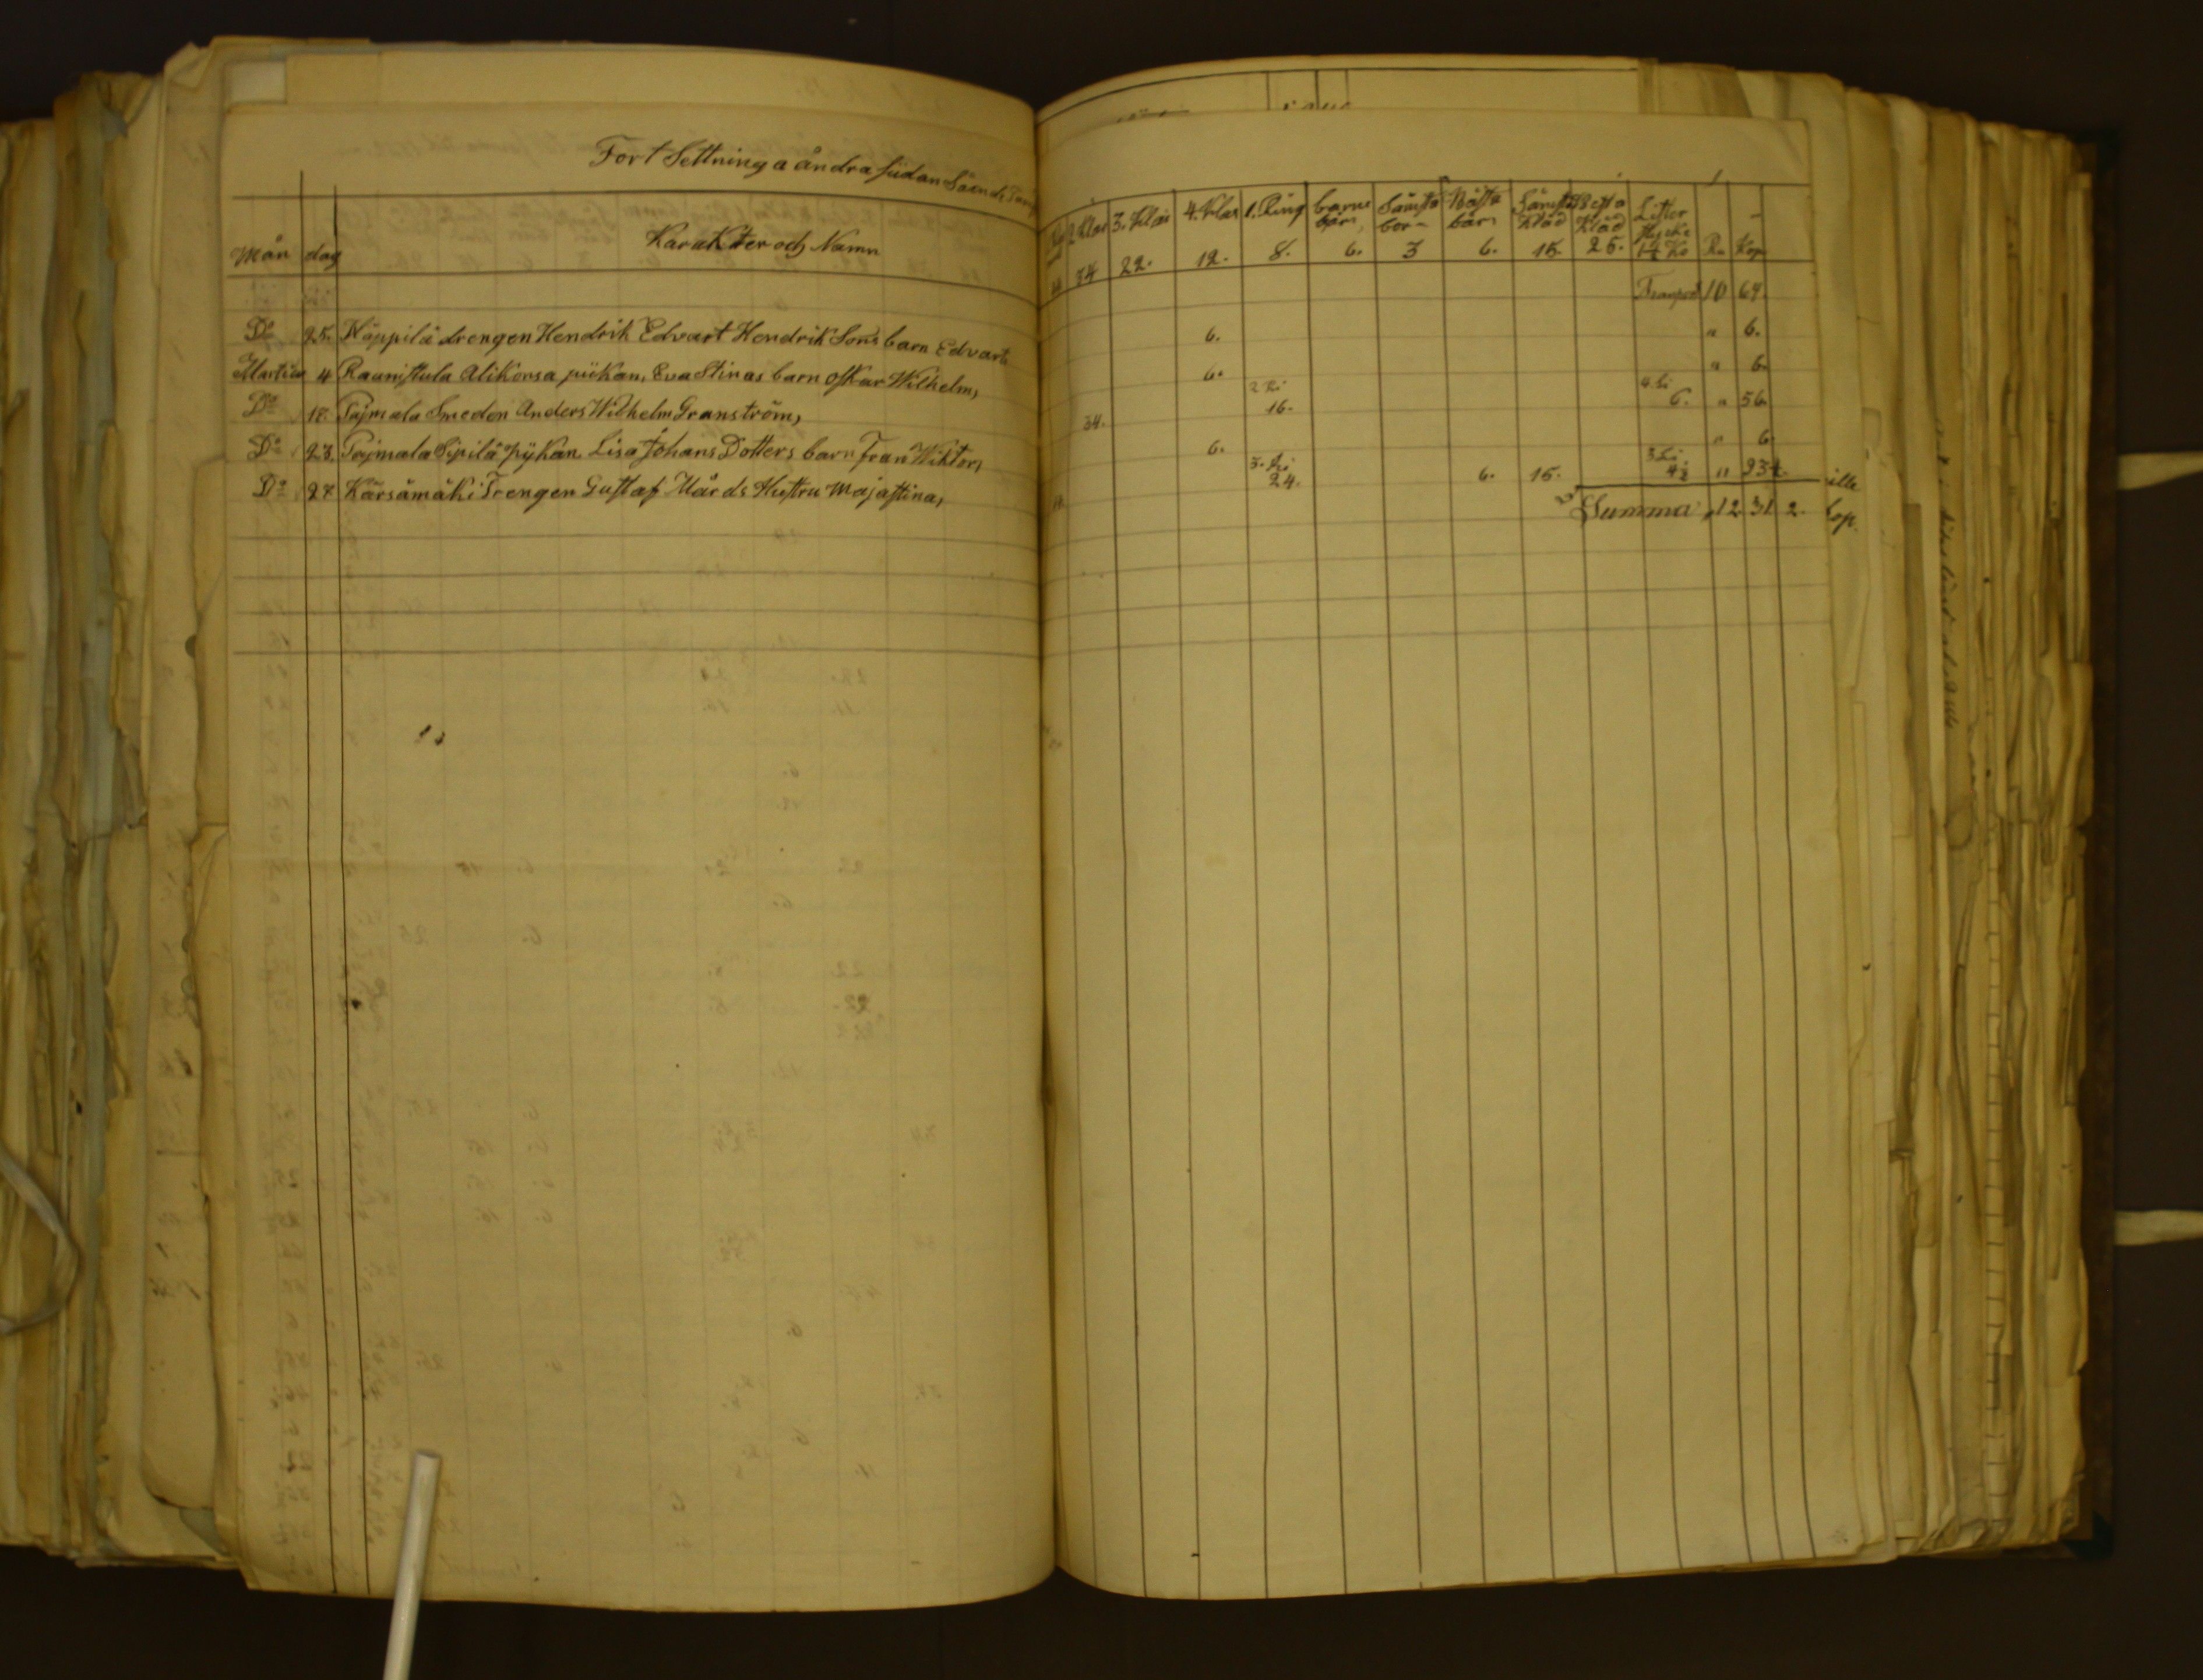 Fort Settning a åndra siidan
Mån dag Karakter och Namn
2 Klas 3. Klas 4. Klas 1. Ring barne bår, Sämsta bor- Bästa bår, Sämsta Kläd Besta Kläd Ru Kop
34 22. 12. 8. 6. 3 6. 15. 25. 1½ Ko
Transport 10 64.
Do 25. Näppilä drengen Hendrik Edvart Hendrik Sons barn Edvart 6. " 6.
Martius 4 Raunistula Alikorsa piikan, Eva Stinas barn Oskar Wilhelm, 6. " 6.
Do 18. Pajmala Smeden Anders Wilhelm Granström, 34. 2 Ri 16. 4 Li 6. " 56.
Do 23. Pajmala Sipilä pykan Lisa Johans Dotters barn Fran Wiktor, 6. " 6.
Do 27 Kärsämäki Trengen Gustaf Mårds Hustru Majastina, 3. Ri 24. 6. 15. 3 Li 4½ "
Summa 12 31 2. kop.